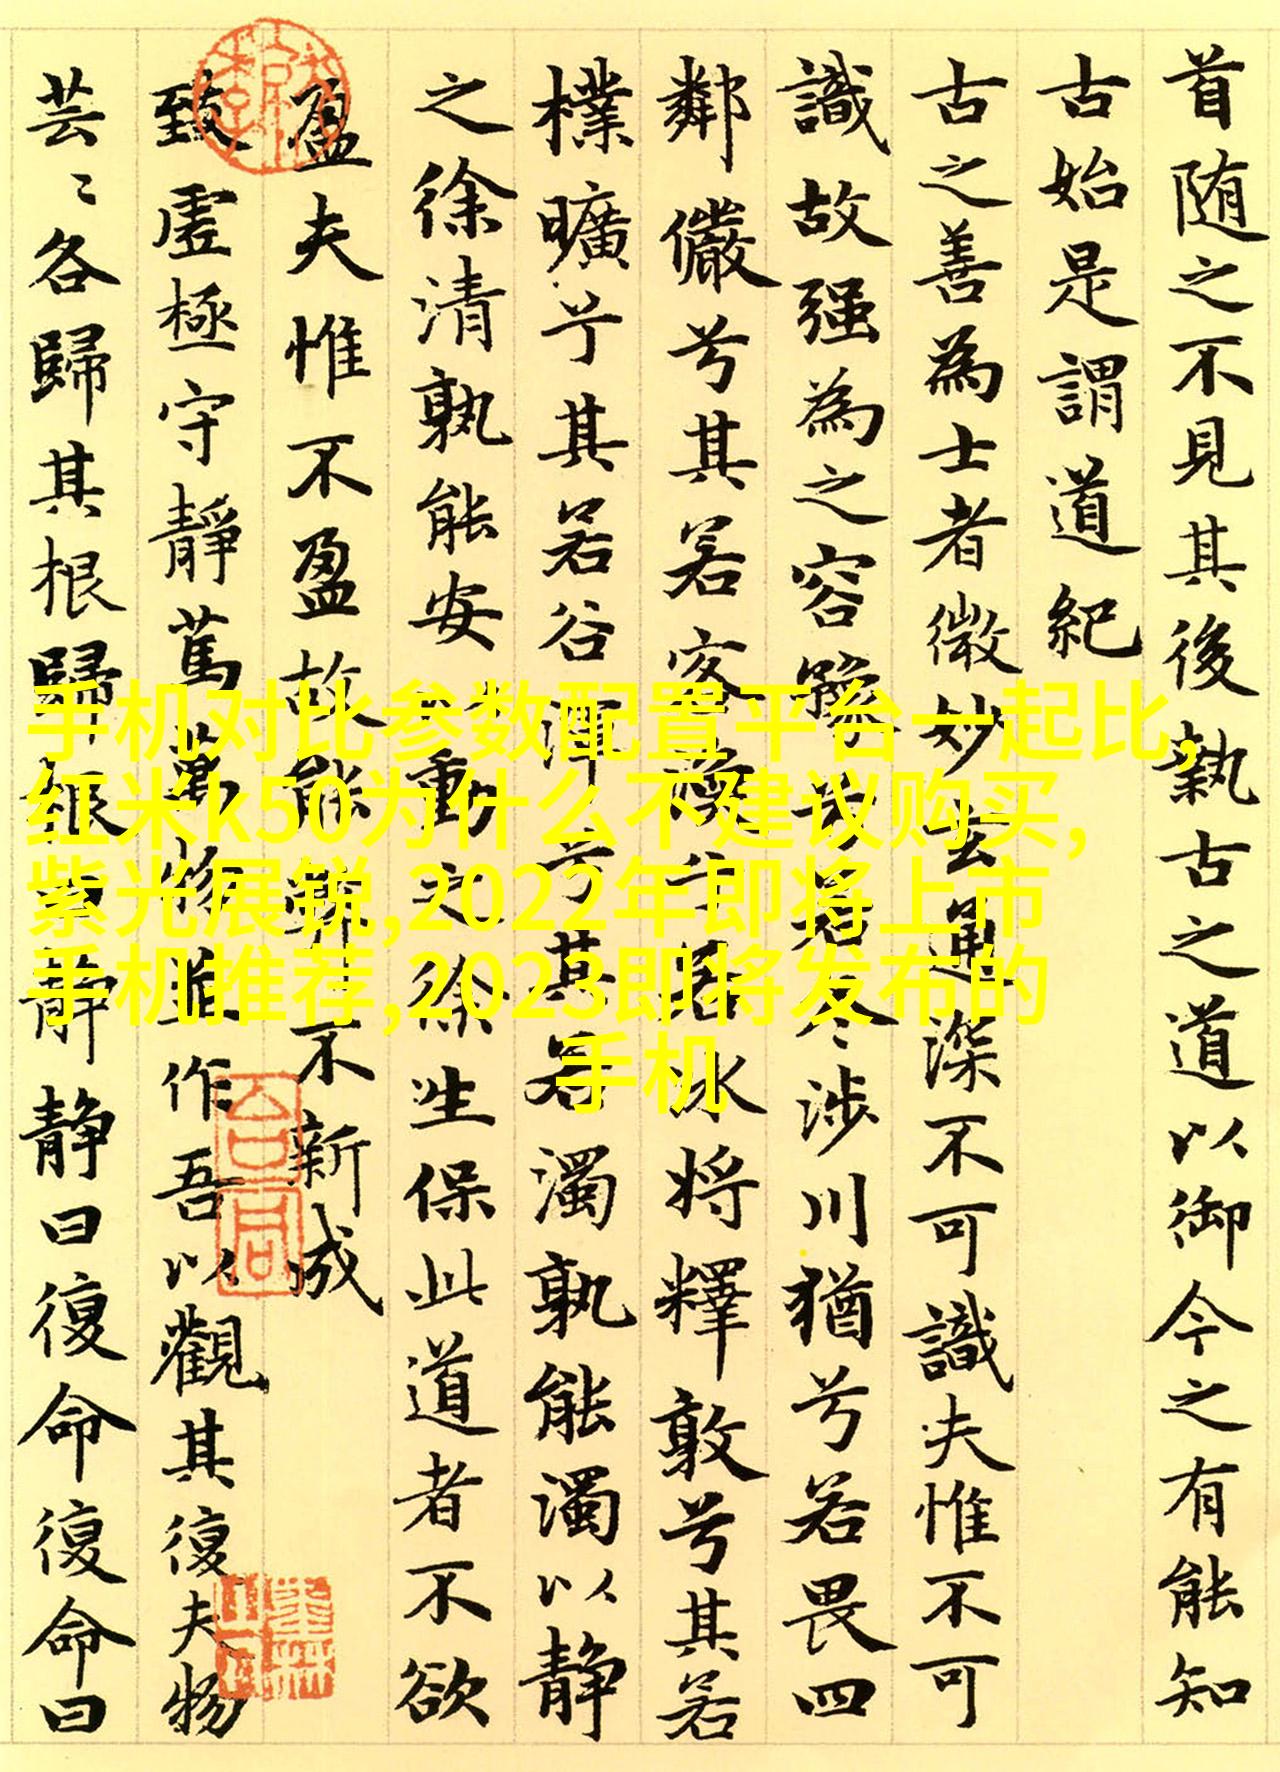 首随之不見其後執古之道以御今之有能知
古始是謂道紀
古之善為士者微妙玄通深不可識夫惟不可
識故强為之容豫兮若冬涉川猶兮若畏四
鄰儼兮其若客渙兮若冰将釋敦兮其若
樸曠兮其若谷渾兮其若濁孰能濁以静
之徐清孰能安以動之徐生保此道者不欲
盈夫惟不盈故能弊不新成
致虛極守靜篤萬物並作吾以觀其復夫物
芸〻各歸其根歸根曰静静曰復命復命曰
手机对比参数配置平台一起比,
红米k50为什么不建议购买,
紫光展锐,2022年即将上市
手机推荐,2023即将发布的
手机